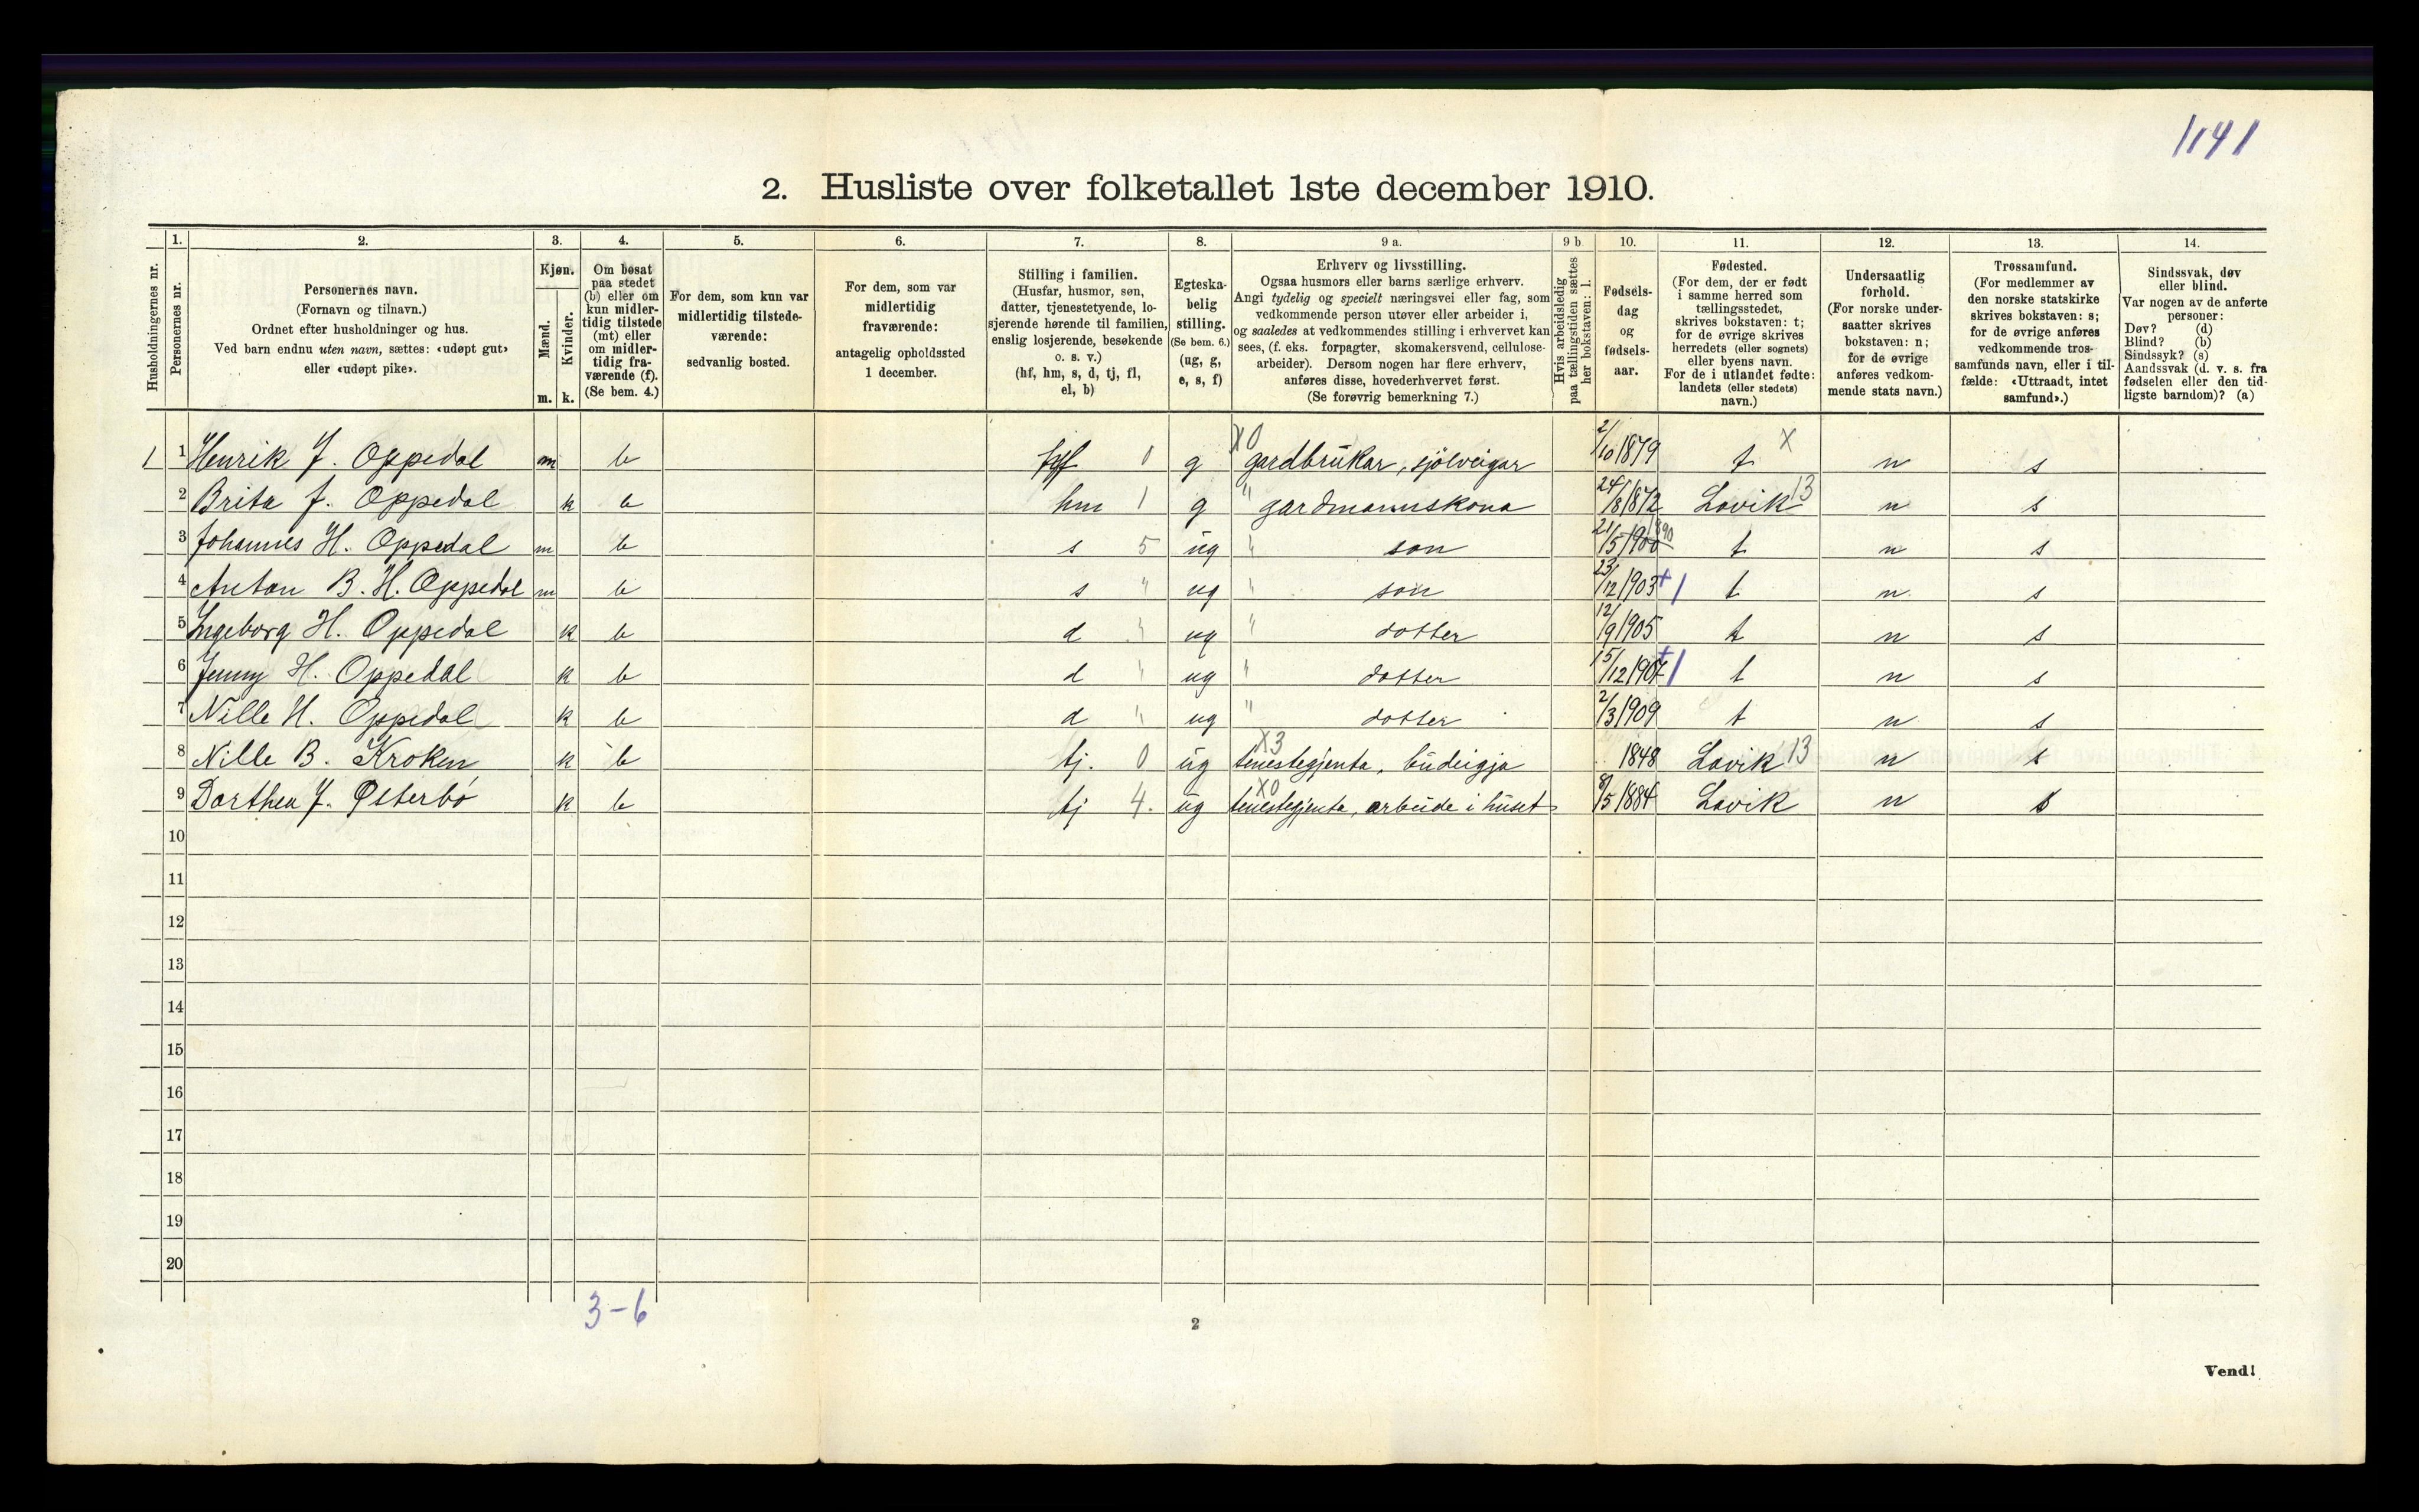 1141
2. Husliste over folketallet 1ste december 1910.
Husholdningernes nr.
1. Personernes nr.
2. Personernes navn.
(Fornavn og tilnavn.)
Ordnet efter husholdninger og hus.
Ved barn endnu uten navn, sættes: «udøpt gut»
eller «udøpt pike».
3. Kjøn.
Mænd. m.
Kvinder. k.
4. Om bosat
paa stedet
(b) eller om
kun midler-
tidig tilstede
(mt) eller
om midler-
tidig fra-
værende (f).
(Se bem. 4.)
5. For dem, som kun var
midlertidig tilstede-
værende:
sedvanlig bosted.
6. For dem, som var
midlertidig
fraværende:
antagelig opholdssted
1 december.
7. Stilling i familien.
(Husfar, husmor, søn,
datter, tjenestetyende, lo-
sjerende hørende til familien,
enslig losjerende, besøkende
o. s. v.)
(hf, hm, s, d, tj, fl,
el, b)
8. Egteska-
belig
stilling.
(Se bem. 6.)
(ug, g,
e, s, f)
9 a. Erhverv og livsstilling.
Ogsaa husmors eller barns særlige erhverv.
Angi tydelig og specielt næringsvei eller fag, som
vedkommende person utøver eller arbeider i,
og saaledes at vedkommendes stilling i erhvervet kan
sees, (f. eks. forpagter, skomakersvend, cellulose-
arbeider). Dersom nogen har flere erhverv,
anføres disse, hovederhvervet først.
(Se forøvrig bemerkning 7.)
9 b. Hvis arbeidsledig
paa tællingstiden sættes
her bokstaven: l.
10. Fødsels-
dag
og
fødsels-
aar.
11. Fødested.
(For dem, der er født
i samme herred som
tællingsstedet,
skrives bokstaven: t;
for de øvrige skrives
herredets (eller sognets)
eller byens navn.
For de i utlandet fødte:
landets (eller stedets)
navn.)
12. Undersaatlig
forhold.
(For norske under-
saatter skrives
bokstaven: n;
for de øvrige
anføres vedkom-
mende stats navn.)
13. Trossamfund.
(For medlemmer av
den norske statskirke
skrives bokstaven: s;
for de øvrige anføres
vedkommende tros-
samfunds navn, eller i til-
fælde: «Uttraadt, intet
samfund».)
14. Sindssvak, døv
eller blind.
Var nogen av de anførte
personer:
Døv? (d)
Blind? (b)
Sindssyk? (s)
Aandssvak (d. v. s. fra
fødselen eller den tid-
ligste barndom)? (a)
1 1 Henrik J. Oppedal m b hf 0 g X0 gardbrukar, sjölveigar 2/10 1879 t X n s
2 Brita J. Oppedal k b hm 1 g " gardmannskona 24/8 1872 Lavik 13 n s
3 Johannes H. Oppedal m b s 5 ug " son 21/5 1900 t n s
4 Anton B. H. Oppedal m b s " ug " son 23/12 1903 + 1 t n s
5 Ingeborg H. Oppedal k b d " ug " dotter 12/9 1905 t n s
6 Jenny H. Oppedal k b d " ug " dotter 15/12 1907 + 1 t n s
7 Nille H. Oppedal k b d " ug " dotter 2/3 1909 t n s
8 Nille B. Kroken k b tj. 0 ug X3 tenestegjenta, budeigja 1848 Lavik 13 n s
9 Dorthea J. Østerbö k b tj 4. ug X0 tenestegjenta, arbeide i huset 8/5 1884 Lavik n s
10
11
12
13
14
15
16
17
18
19
20
3-6
2
Vend!